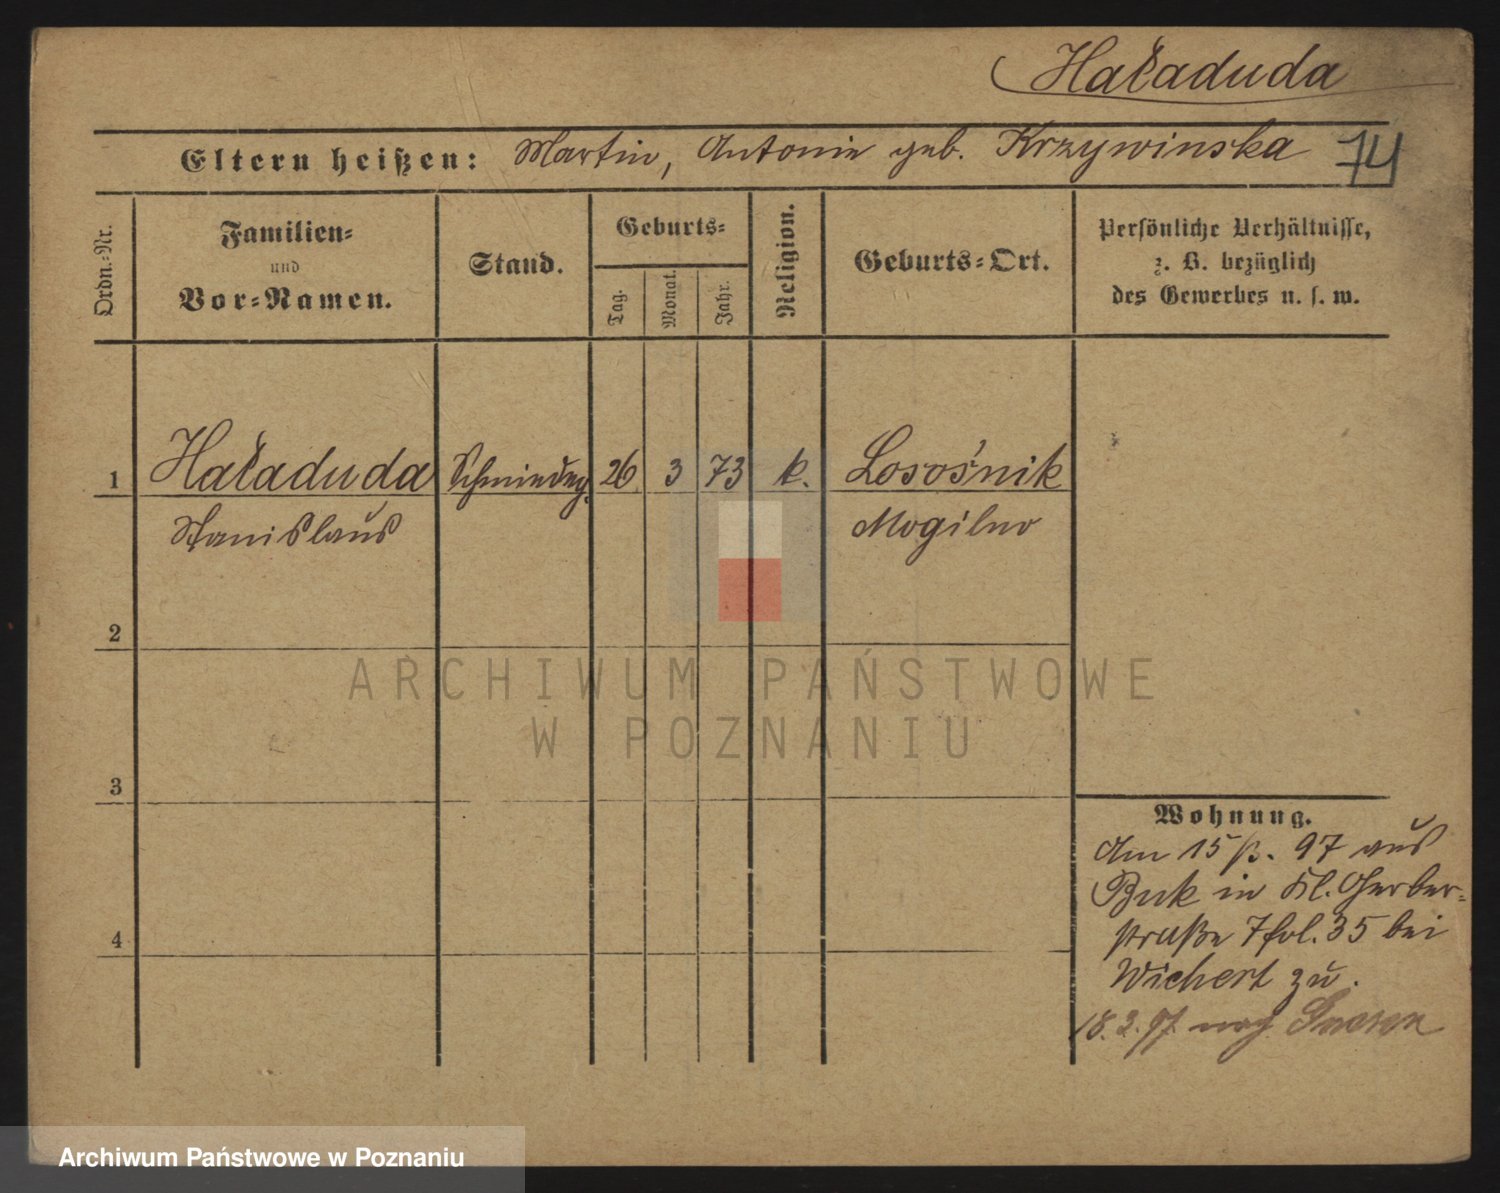 Haładuda
Eltern heißen: Martin, Antonie geb. Krzywinska 74
Ordn.-Nr.
Familien-
und
Vor-Namen.
Stand.
Geburts-
Tag.
Monat.
Jahr.
Religion.
Geburts-Ort.
Persönliche Verhältnisse,
z. B. bezüglich
des Gewerbes u. s. w.
1 Haładuda Schmiedeg. 26 3 73 k. Losośnik
Stanislaus Mogilno
2
ARCHIWUM PAŃSTWOWE
W POZNANIU
3
Wohnung.
Am 15/3. 97 aus
Buk in Kl. Gerber-
straße 7 fol. 35 bei
Wichert zu.
4
18.3.97. nach Gnesen
Archiwum Państwowe w Poznaniu